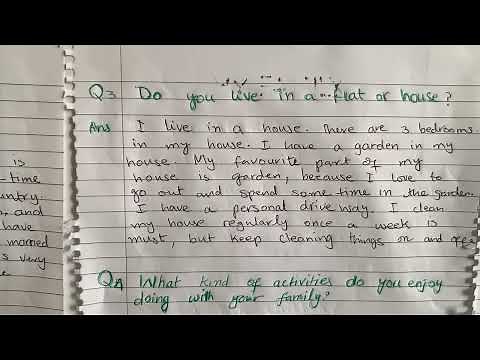 is
-time
untry.
, and
have
married
s very
e
Q3 Do you live in a flat or house?
Ans I live in a house. There are 3 bedrooms
in my house. I have a garden in my
house. My favourite part of my
house is garden, because I love to
go out and spend some time in the garden.
I have a personal drive way. I clean
my house regularly once a week is
must, but keep cleaning things on and off.
Q4 What kind of activities do you enjoy
doing with your family?